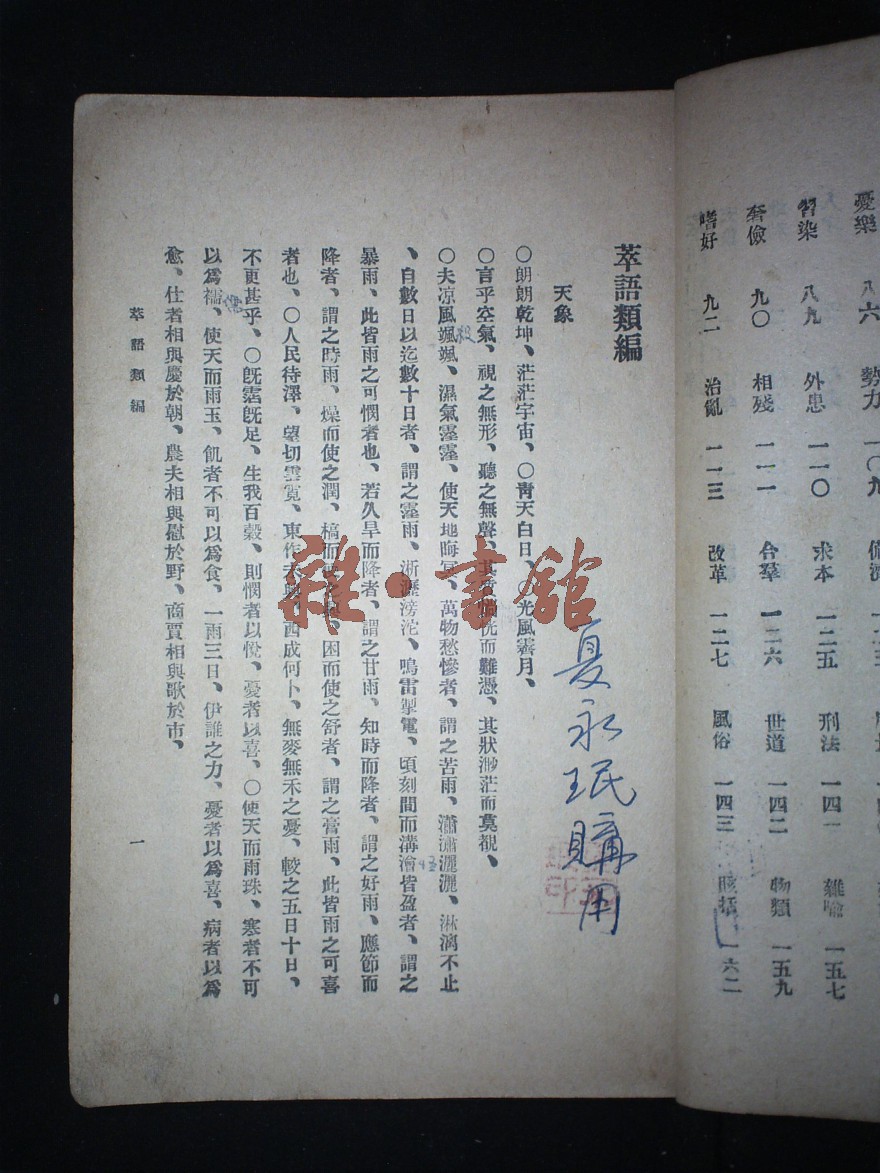 憂樂 八六 勢力 一〇九
習染 八九 外患 一一〇 求本 一二五 刑法 一四一 雜喻 一五七
奢儉 九〇 相殘 一一一 合羣 一二六 世道 一四二 物類 一五九
嗜好 九二 治亂 一一三 改革 一二七 風俗 一四三 賅括 一六二
萃語類編
天象
〇朗朗乾坤、茫茫宇宙、〇青天白日、〇光風霽月、
〇言乎空氣、視之無形、聽之無聲、其質惝恍而難憑、其狀渺茫而莫覩、
〇夫凉風颯颯、濕氣霪霪、使天地晦冥、萬物愁慘者、謂之苦雨、瀟瀟灑灑、淋漓不止
、自數日以迄數十日者、謂之霪雨、淅瀝滂沱、鳴雷掣電、頃刻間而溝澮皆盈者、謂之
暴雨、此皆雨之可憫者也、若久旱而降者、謂之甘雨、知時而降者、謂之好雨、應節而
降者、謂之時雨、燥而使之潤、槁而 困而使之舒者、謂之膏雨、此皆雨之可喜
者也、〇人民待澤、望切雲霓、東作未 西成何卜、無麥無禾之憂、較之五日十日、
不更甚乎、〇旣霑旣足、生我百穀、則憫者以悅、憂者以喜、〇使天而雨珠、寒者不可
以爲襦、使天而雨玉、飢者不可以爲食、一雨三日、伊誰之力、憂者以爲喜、病者以爲
愈、仕者相與慶於朝、農夫相與慰於野、商賈相與歌於市、
萃語類編 一
夏永珉購用
雜·書館